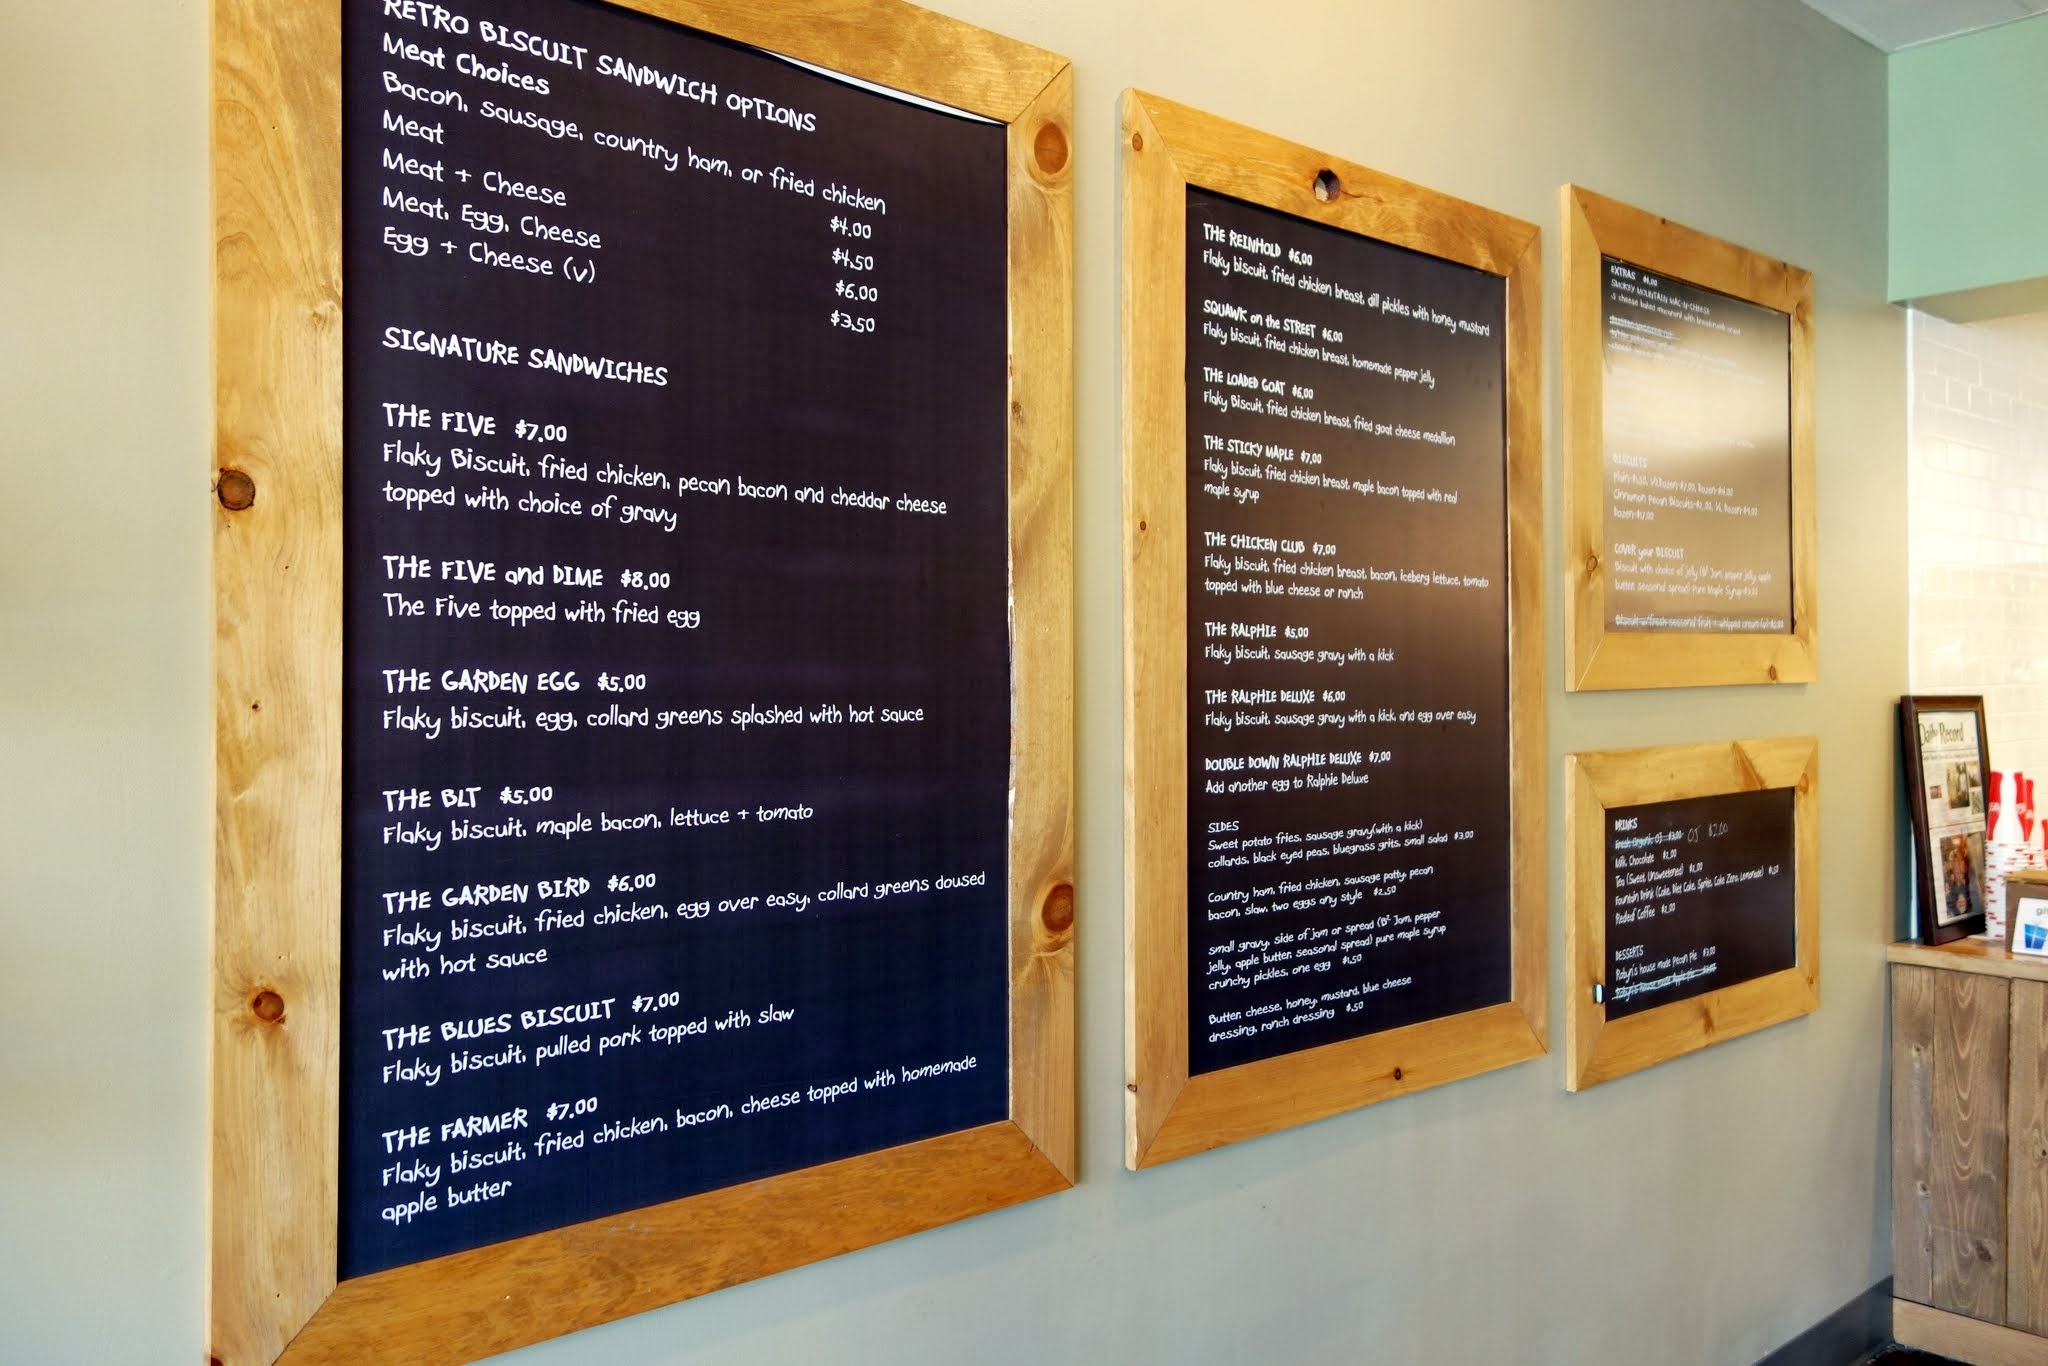 RETRO BISCUIT SANDWICH OPTIONS
Meat Choices
Bacon, sausage, country ham, or fried chicken
Meat $4.00
Meat + Cheese $4.50
Meat, Egg, Cheese $6.00
Egg + Cheese (v) $3.50
SIGNATURE SANDWICHES
THE FIVE $7.00
Flaky Biscuit, fried chicken, pecan bacon and cheddar cheese
topped with choice of gravy
THE FIVE and DIME $8.00
The Five topped with fried egg
THE GARDEN EGG $5.00
Flaky biscuit, egg, collard greens splashed with hot sauce
THE BLT $5.00
Flaky biscuit, maple bacon, lettuce + tomato
THE GARDEN BIRD $6.00
Flaky biscuit, fried chicken, egg over easy, collard greens doused
with hot sauce
THE BLUES BISCUIT $7.00
Flaky biscuit, pulled pork topped with slaw
THE FARMER $7.00
Flaky biscuit, fried chicken, bacon, cheese topped with homemade
apple butter
THE REINHOLD $6.00
Flaky biscuit, fried chicken breast, dill pickles with honey mustard
SQUAWK on the STREET $6.00
Flaky biscuit, fried chicken breast, homemade pepper jelly
THE LOADED GOAT $6.00
Flaky Biscuit, fried chicken breast, fried goat cheese medallion
THE STICKY MAPLE $7.00
Flaky biscuit, fried chicken breast, maple bacon topped with real
maple syrup
THE CHICKEN CLUB $7.00
Flaky biscuit, fried chicken breast, bacon, iceberg lettuce, tomato
topped with blue cheese or ranch
THE RALPHIE $5.00
Flaky biscuit, sausage gravy with a kick
THE RALPHIE DELUXE $6.00
Flaky biscuit, sausage gravy with a kick, and egg over easy
DOUBLE DOWN RALPHIE DELUXE $7.00
Add another egg to Ralphie Deluxe
SIDES
Sweet potato fries, sausage gravy(with a kick)
collards, black eyed peas, bluegrass grits, small salad $3.00
Country ham, fried chicken, sausage patty, pecan
bacon, slaw, two eggs any style $2.50
small gravy, side of jam or spread (B² Jam, pepper
jelly, apple butter, seasonal spread) pure maple syrup
crunchy pickles, one egg $1.50
Butter, cheese, honey, mustard, blue cheese
dressing, ranch dressing $.50
EXTRAS $4.00
SMOKEY MOUNTAIN MAC-N-CHEESE
cheese baked macaroni with breadcrumb crust
BISCUITS
Cinnamon Pecan Biscuits
COVER your BISCUIT
Biscuit with choice of jelly (B² Jam, pepper jelly, apple
butter, seasonal spread) Pure Maple Syrup
Biscuit w/fresh seasonal fruit + whipped cream
DRINKS
Fresh Organic OJ $3.00 OJ $2.00
Milk, Chocolate $2.00
Tea (Sweet, Unsweetened)
Fountain Drink (Coke, Diet Coke, Sprite, Coke Zero, Lemonade)
Redeaf Coffee $2.00
DESSERTS
Robyn's house made Pecan Pie $3.00
Robyn's house made Apple Pie
Daily Record